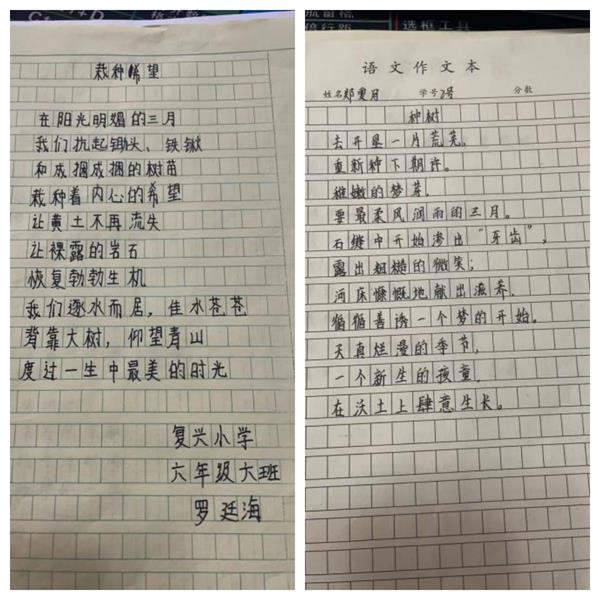 栽种希望
在阳光明媚的三月
我们扛起锄头、铁锹
和成捆成捆的树苗
栽种着内心的希望
让黄土不再流失
让裸露的岩石
恢复勃勃生机
我们逐水而居，佳水苍苍
背靠大树，仰望青山
度过一生中最美的时光
复兴小学
六年级大班
罗廷海
选框工具
语文作文本
姓名 郑雯月 学号 2号 分数
种树
去开垦一片荒芜，
重新种下期许。
稚嫩的梦芽，
要最柔风润雨的三月。
石缝中开始渗出“牙齿”，
露出粗糙的微笑；
河床慷慨地献出滋养，
循循善诱一个梦的开始。
天真烂漫的季节，
一个新生的孩童，
在沃土上肆意生长。